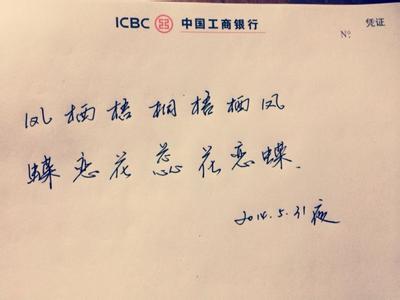 ICBC 中国工商银行
凭证
№
凤栖梧桐梧栖凤
蝶恋花蕊花恋蝶.
2014.5.31夜